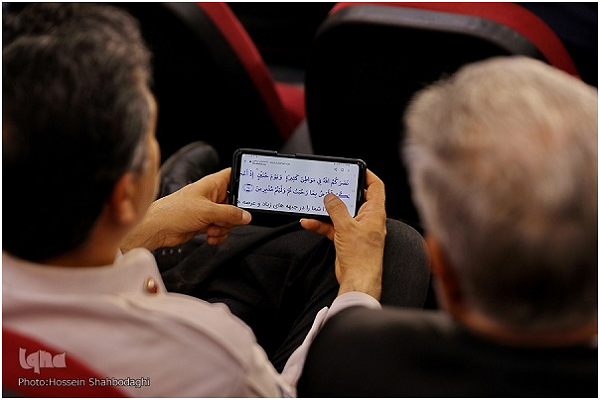 نَصَرَكُمُ اللَّهُ فِي مَوَاطِنَ كَثِيرَةٍ وَيَوْمَ حُنَيْنٍ إِذْ
بِمَا رَحُبَتْ ثُمَّ وَلَّيْتُمْ مُدْبِرِينَ
شما را در جبهه های زیاد و عرصه
iqna
Photo:Hossein Shahbodaghi